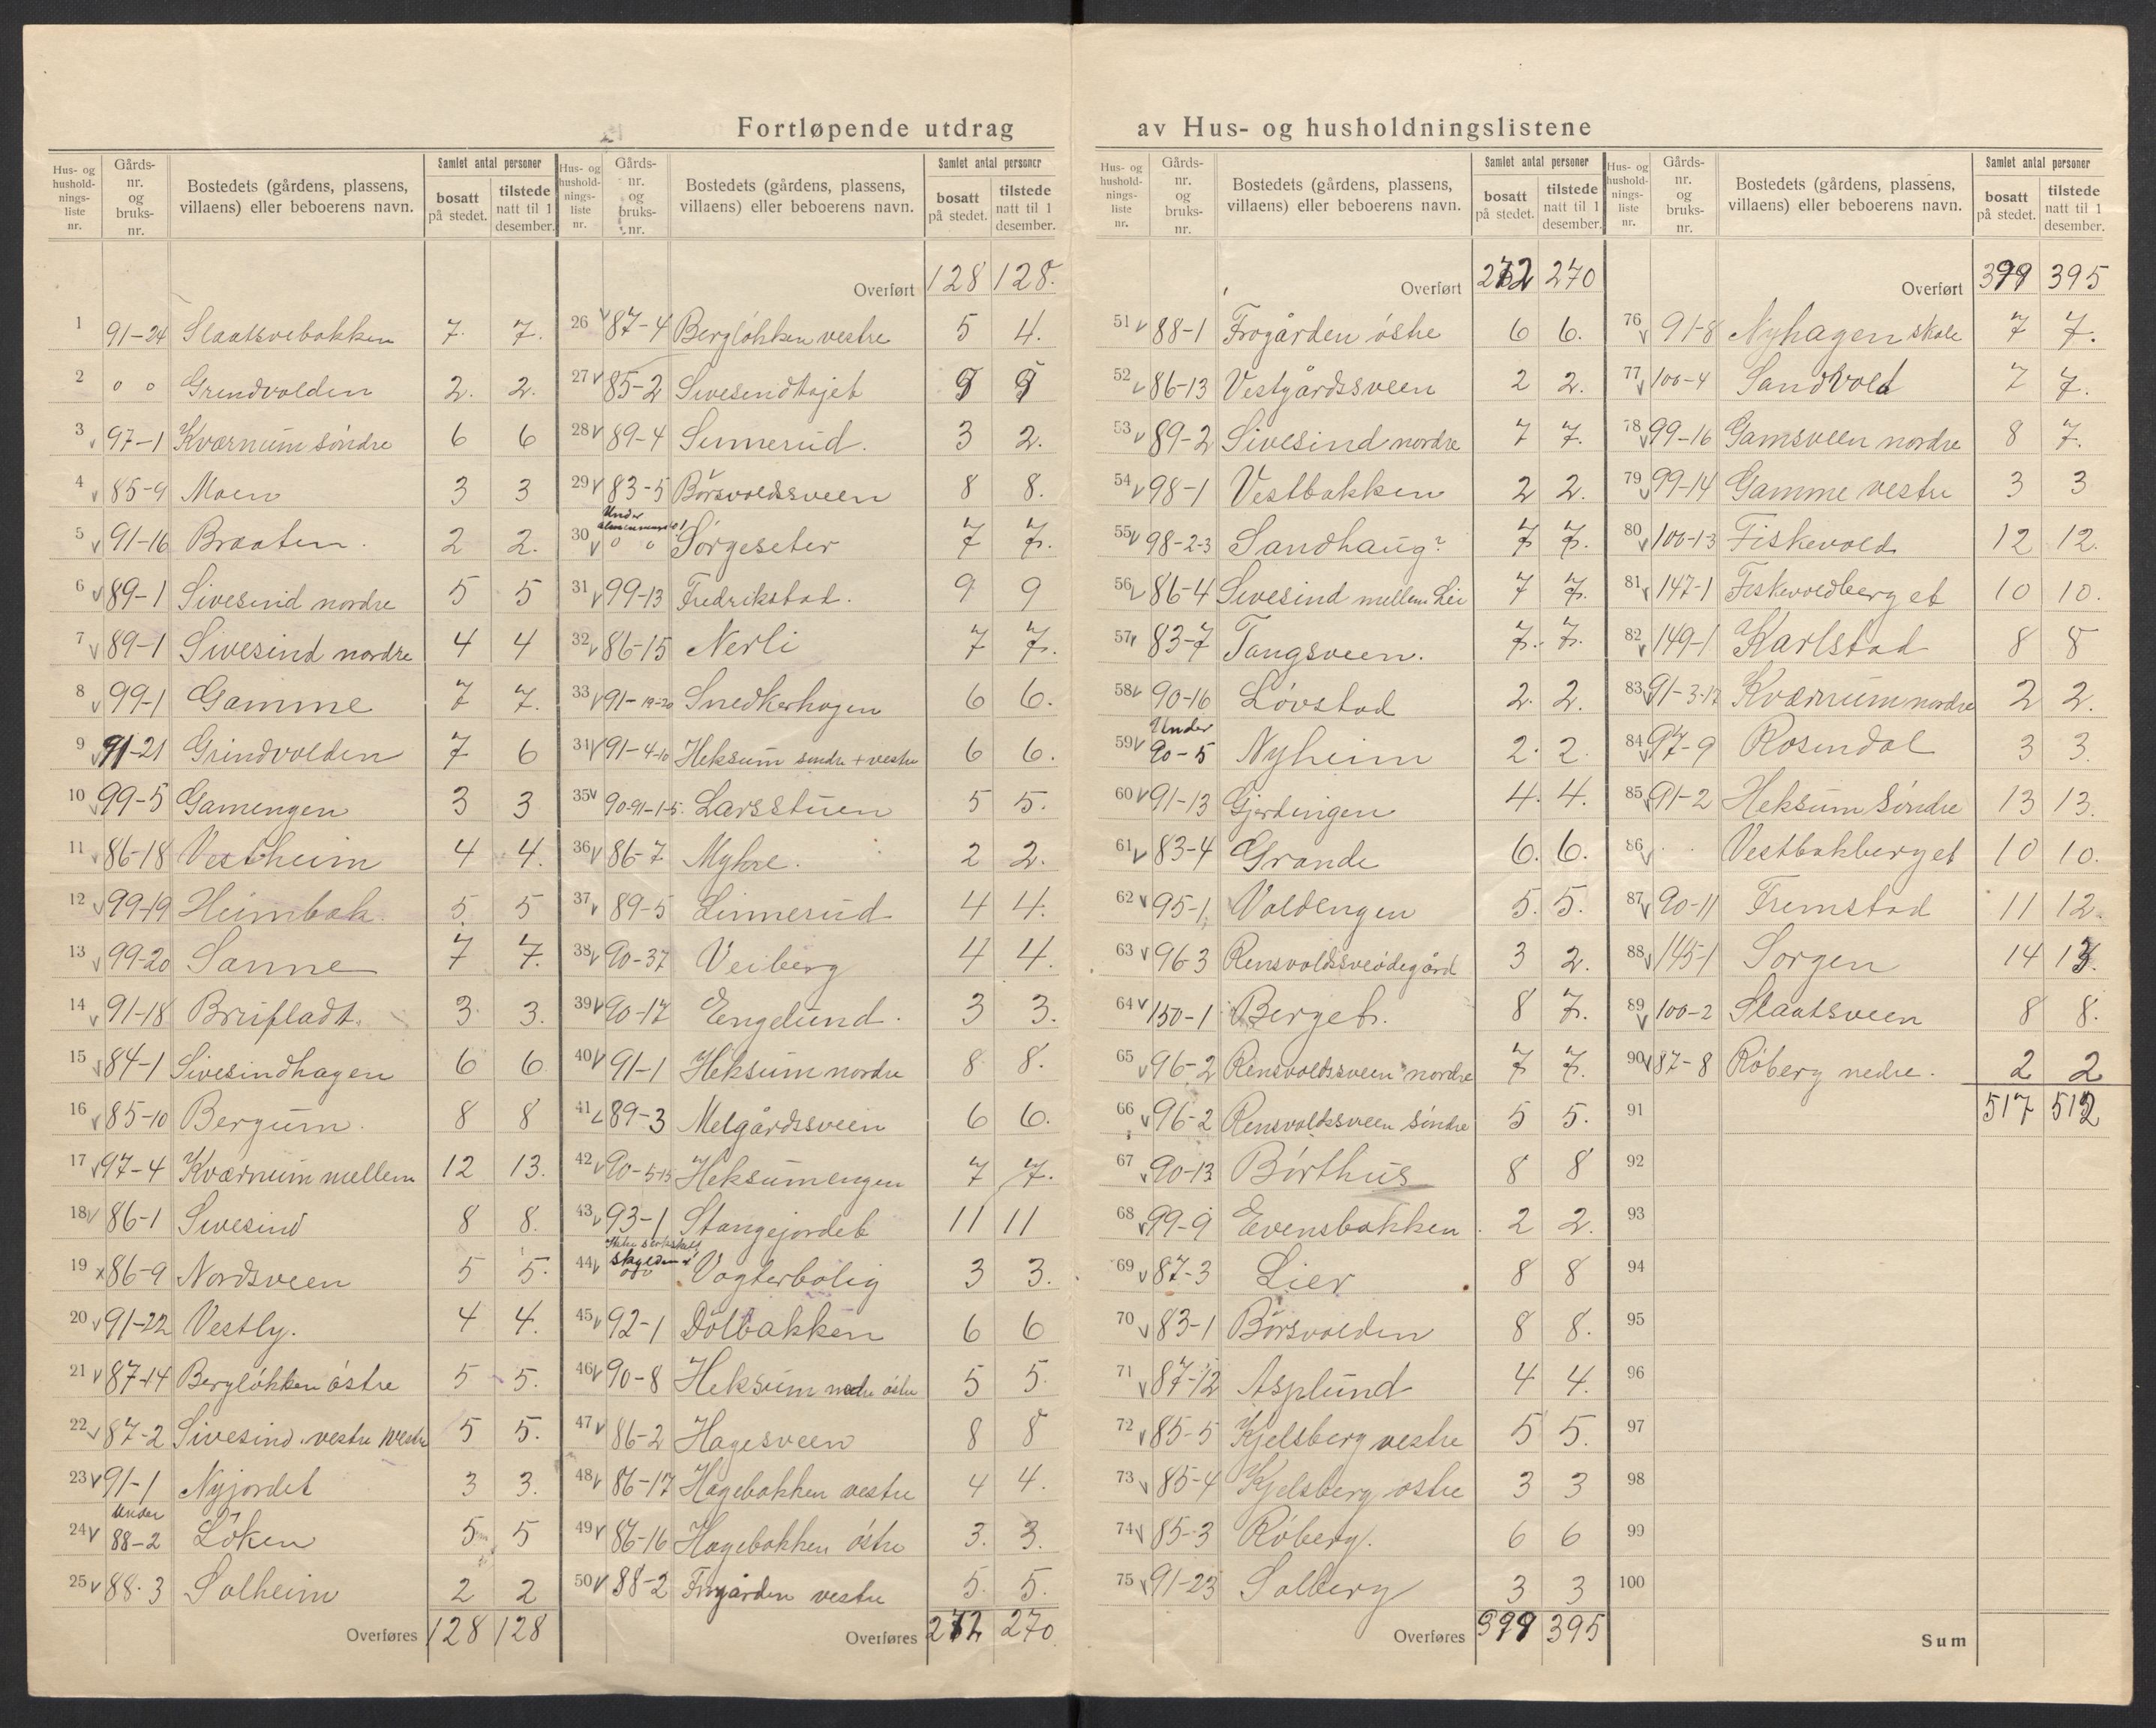 Fortløpende utdrag av Hus- og husholdningslistene
Hus- og husholdningsliste nr. | Gårds- nr. og bruks- nr. | Bostedets (gårdens, plassens, villaens) eller beboerens navn. | Samlet antal personer bosatt på stedet. | tilstede natt til 1 desember.
1 91-24 Slaatsvebakken 7. 7.
2 o o Grendvolden 2. 2.
3 97-1 Kværnum söndre 6 6
4 85-9 Moen 3 3
5 91-16 Braaten. 2 2.
6 89-1 Sivesind nordre 5 5
7 89-1 Sivesind nordre 4 4
8 99-1 Gamme 7 7.
9 91-21 Grindvolden 7 6
10 99-5 Gamengen 3 3
11 86-18 Vestheim 4 4.
12 99-19 Heimbak. 5. 5
13 99-20 Sanne 7 7.
14 91-18 Brufladt. 3. 3.
15 84-1 Sivesindhagen 6 6
16 85-10 Bergum. 8 8
17 97-4 Kværnum mellem 12 13.
18 86-1 Sivesind 8 8.
19 86-9 Nordsveen 5 5.
20 91-22 Vestly. 4 4.
21 87-14 Bergløkken østre 5 5.
22 87-2 Sivesind vestre 5 5.
23 91-1 Nyjordet 3 3.
24 Under 88-2 Löken 5 5
25 88-3 Solheim 2 2
Overføres 128 128
Hus- og husholdningsliste nr. | Gårds- nr. og bruks- nr. | Bostedets (gårdens, plassens, villaens) eller beboerens navn. | Samlet antal personer bosatt på stedet. | tilstede natt til 1 desember.
Overført 128 128.
26 87-4 Bergløkken vestre 5 4.
27 85-2 Sivesindhajet 9 9
28 89-4 Linnerud. 3 2.
29 83-5 Børsvoldsveen 8 8.
30 Under o o Sörgeseter 7 7.
31 99-13 Fredrikstad. 9 9
32 86-15 Nerli 7 7.
33 91-19-20 Snedkerhagen 6 6.
34 91-4-10 Heksum søndre + vestre 6 6.
35 90-91-1-5. Larsstuen 5 5.
36 86-7 Myhre. 2 2.
37 89-5 Linnerud 4 4.
38 90-37 Veiberg 4 4.
39 90-17 Engelund. 3 3.
40 91-1 Heksum nordre 8 8.
41 89-3 Melgårdssveen 6 6.
42 90-5-15 Heksumengen 7 7.
43 93-1 Stangejordet 11 11
44 Vogterbolig 3 3.
45 92-1 Dölbakken 6 6
46 90-8 Heksum nedre östre 5 5.
47 86-2 Hagesveen 8 8
48 86-17 Hagebakken vestre 4 4.
49 86-16 Hagebakken östre 3. 3.
50 88-2 Frøgården vestre 5. 5.
Overføres 272 270.
Hus- og husholdningsliste nr. | Gårds- nr. og bruks- nr. | Bostedets (gårdens, plassens, villaens) eller beboerens navn. | Samlet antal personer bosatt på stedet. | tilstede natt til 1 desember.
Overført 272 270
51 88-1 Frøgården østre 6 6.
52 86-13 Vestgårdssveen 2 2.
53 89-2 Sivesind nordre 7 7.
54 98-1 Vestbakken 2 2.
55 98-2-3 Sandhaug? 7 7.
56 86-4 Sivesind mellem Lie 7 7.
57 83-7 Tangsveen. 7. 7.
58 90-16 Løvstad 2. 2.
59 Under 90-5 Nyheim 2. 2.
60 91-13 Gjerdingen 4. 4.
61 83-4 Grande 6. 6.
62 95-1 Voldengen 5. 5.
63 96-3 Rensvoldsveødegård 3 2.
64 150-1 Berget. 8 7.
65 96-2 Rensvoldssveen nordre 7 7.
66 96-2 Rensvoldssveen søndre 5 5.
67 90-13 Børthus 8 8
68 99-9 Evensbakken 2 2.
69 87-3 Lier 8 8
70 83-1 Børsvolden 8 8.
71 87-12 Asplund 4 4.
72 85-5 Kjelsberg vestre 5 5.
73 85-4 Kjelsberg østre 3 3
74 85-3 Røberg. 6 6
75 91-23 Solberg 3 3
Overføres 399 395
Hus- og husholdningsliste nr. | Gårds- nr. og bruks- nr. | Bostedets (gårdens, plassens, villaens) eller beboerens navn. | Samlet antal personer bosatt på stedet. | tilstede natt til 1 desember.
Overført 399 395
76 91-8 Nyhagen skole 7 7.
77 100-4 Sandvold 7 7.
78 99-16 Gamsveen nordre 8 7.
79 99-14 Gamme vestre 3 3
80 100-13 Fiskevold 12 12.
81 147-1 Feskevoldberget 10 10.
82 149-1 Karlstad 8 8
83 91-3-17 Kværnum nordre 2 2.
84 97-9 Rosendal 3 3.
85 91-2 Heksum Søndre 13 13.
86 Vestbakberget 10 10.
87 90-11 Fremstad 11 12.
88 145-1 Sorgen 14 13.
89 100-2 Slaatsveen 8 8.
90 87-8 Røberg nedre. 2 2
91 517 512
92
93
94
95
96
97
98
99
100
Sum